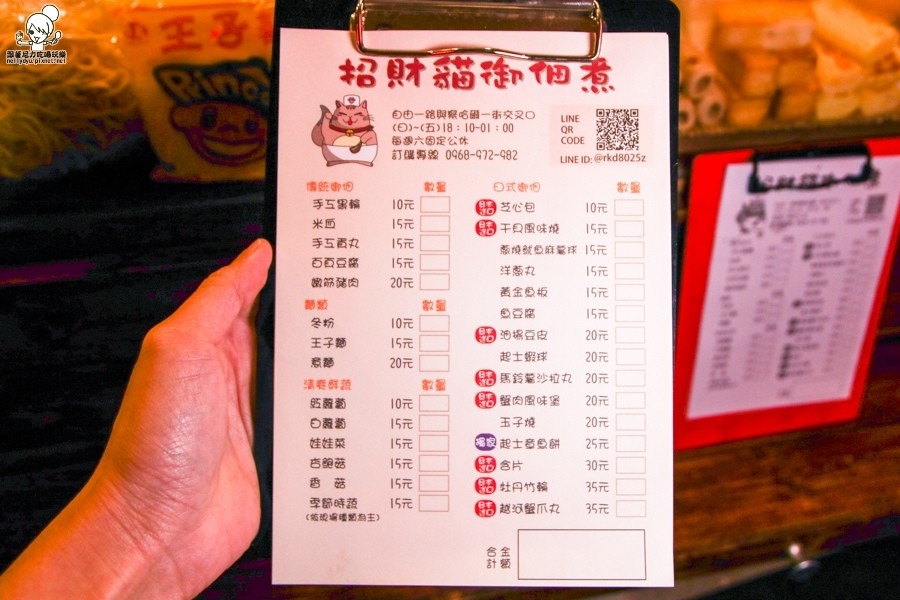 跟著尼力吃喝玩樂
nellydyu.pixnet.net
王子麵
招財貓御佃煮
自由一路與察哈爾一街交叉口
(日)~(五)18：10-01：00
每週六固定公休
訂購專線 0968-972-982
LINE
QR
CODE
LINE ID: @rkd8025z
傳統御佃 數量
手工黑輪 10元
米血 15元
手工貢丸 15元
百頁豆腐 15元
嫩筋豬肉 20元
麵類 數量
冬粉 10元
王子麵 15元
煮麵 20元
清爽鮮蔬 數量
紅蘿蔔 10元
白蘿蔔 15元
娃娃菜 15元
杏鮑菇 15元
香菇 15元
季節時蔬 15元
(依現場種類為主)
日式御佃 數量
日本進口 芝心包 10元
日本進口 干貝風味燒 15元
章燒魷魚麻薯球 15元
洋蔥丸 15元
黃金魚板 15元
魚豆腐 15元
日本進口 油揚豆皮 20元
起士蝦球 20元
日本進口 馬鈴薯沙拉丸 20元
日本進口 蟹肉風味堡 20元
玉子燒 20元
獨家 起士章魚餅 25元
日本進口 含片 30元
日本進口 牡丹竹輪 35元
日本進口 越河蟹爪丸 35元
合計
金額